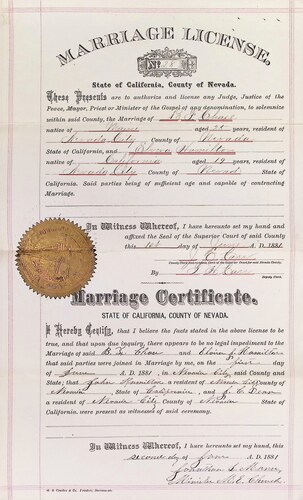 MARRIAGE LICENSE,
No. 28
State of California, County of Nevada.
These Presents are to authorize and license any Judge, Justice of the
Peace, Mayor, Priest or Minister of the Gospel of any denomination, to solemnize
within said County, the Marriage of
native of Maine aged 25 years, resident of
Nevada City County of Nevada
State of California, and Hamilton
native of California aged 19 years, resident of
Nevada City County of Nevada
State of California. Said parties being of sufficient age and capable of contracting
Marriage.
In Witness Whereof, I have hereunto set my hand and
affixed the Seal of the Superior Court of said County
this 1st day of June A. D. 1881.
By
Marriage Certificate.
STATE OF CALIFORNIA, COUNTY OF NEVADA.
I Hereby Certify, that I believe the facts stated in the above license to be
true, and that upon due inquiry, there appears to be no legal impediment to the
Marriage of said and Hamilton
that said parties were joined in Marriage by me, on the first day of
June A. D. 1881, in Nevada City, said County and
State; that Hamilton a resident of Nevada City County of
Nevada, State of California, and
a resident of Nevada City County of Nevada State of
California, were present as witnesses of said ceremony.
In Witness Whereof, I have hereunto set my hand, this
second day of June A. D. 1881
Minister M. E. Church